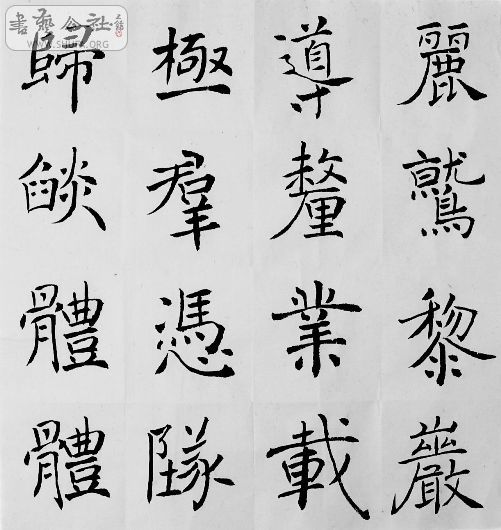 麗鷲黎嚴
導釐業載
極羣憑隊
歸燄體體
書藝公社
www.shufa.org